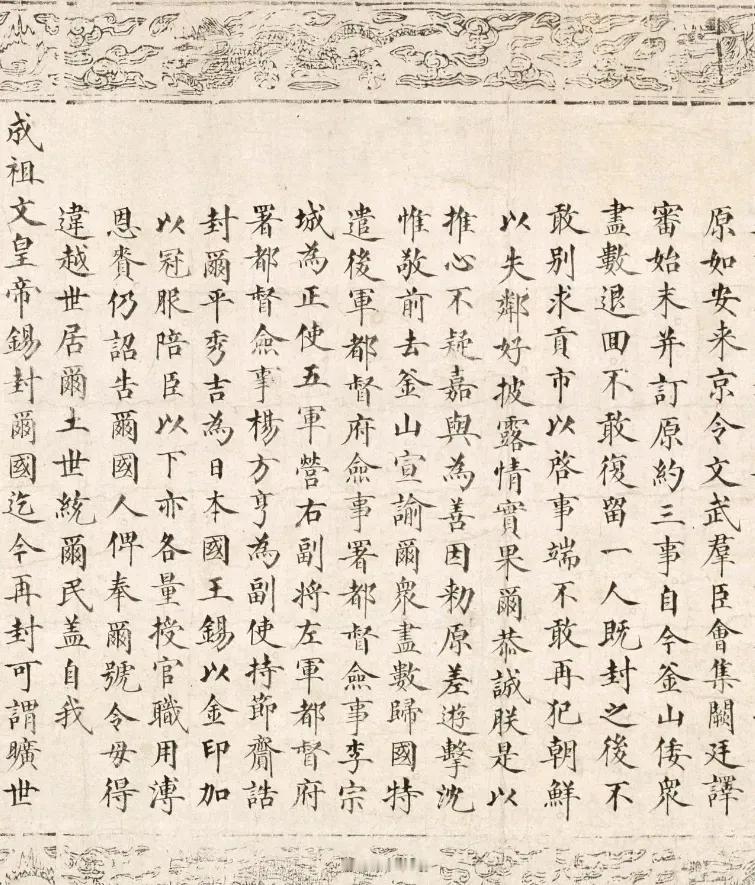 原如安来京令文武羣臣會集闕廷譯
審始末并訂原約三事自今釜山倭衆
盡數退回不敢復留一人既封之後不
敢別求貢市以啓事端不敢再犯朝鮮
以失鄰好披露情實果爾恭誠朕是以
推心不疑嘉與為善因勑原差遊擊沈
惟敬前去釜山宣諭爾衆盡數歸國特
遣後軍都督府僉事署都督僉事李宗
城為正使五軍營右副將左軍都督府
署都督僉事楊方亨為副使持節齎誥
封爾平秀吉為日本國王錫以金印加
以冠服陪臣以下亦各量授官職用溥
恩賚仍詔告爾國人俾奉爾號令毋得
違越世居爾土世統爾民盖自我
成祖文皇帝錫封爾國迄今再封可謂曠世